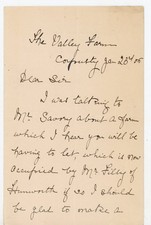 The Valley Farm
Corpusty Jan 23rd 05
Dear Sir
I was talking to
Mr Savory about a farm
which I hear you will be
having to let, which is now
occupied by Mr Filby of
Hunworth if so I should
be glad to make a